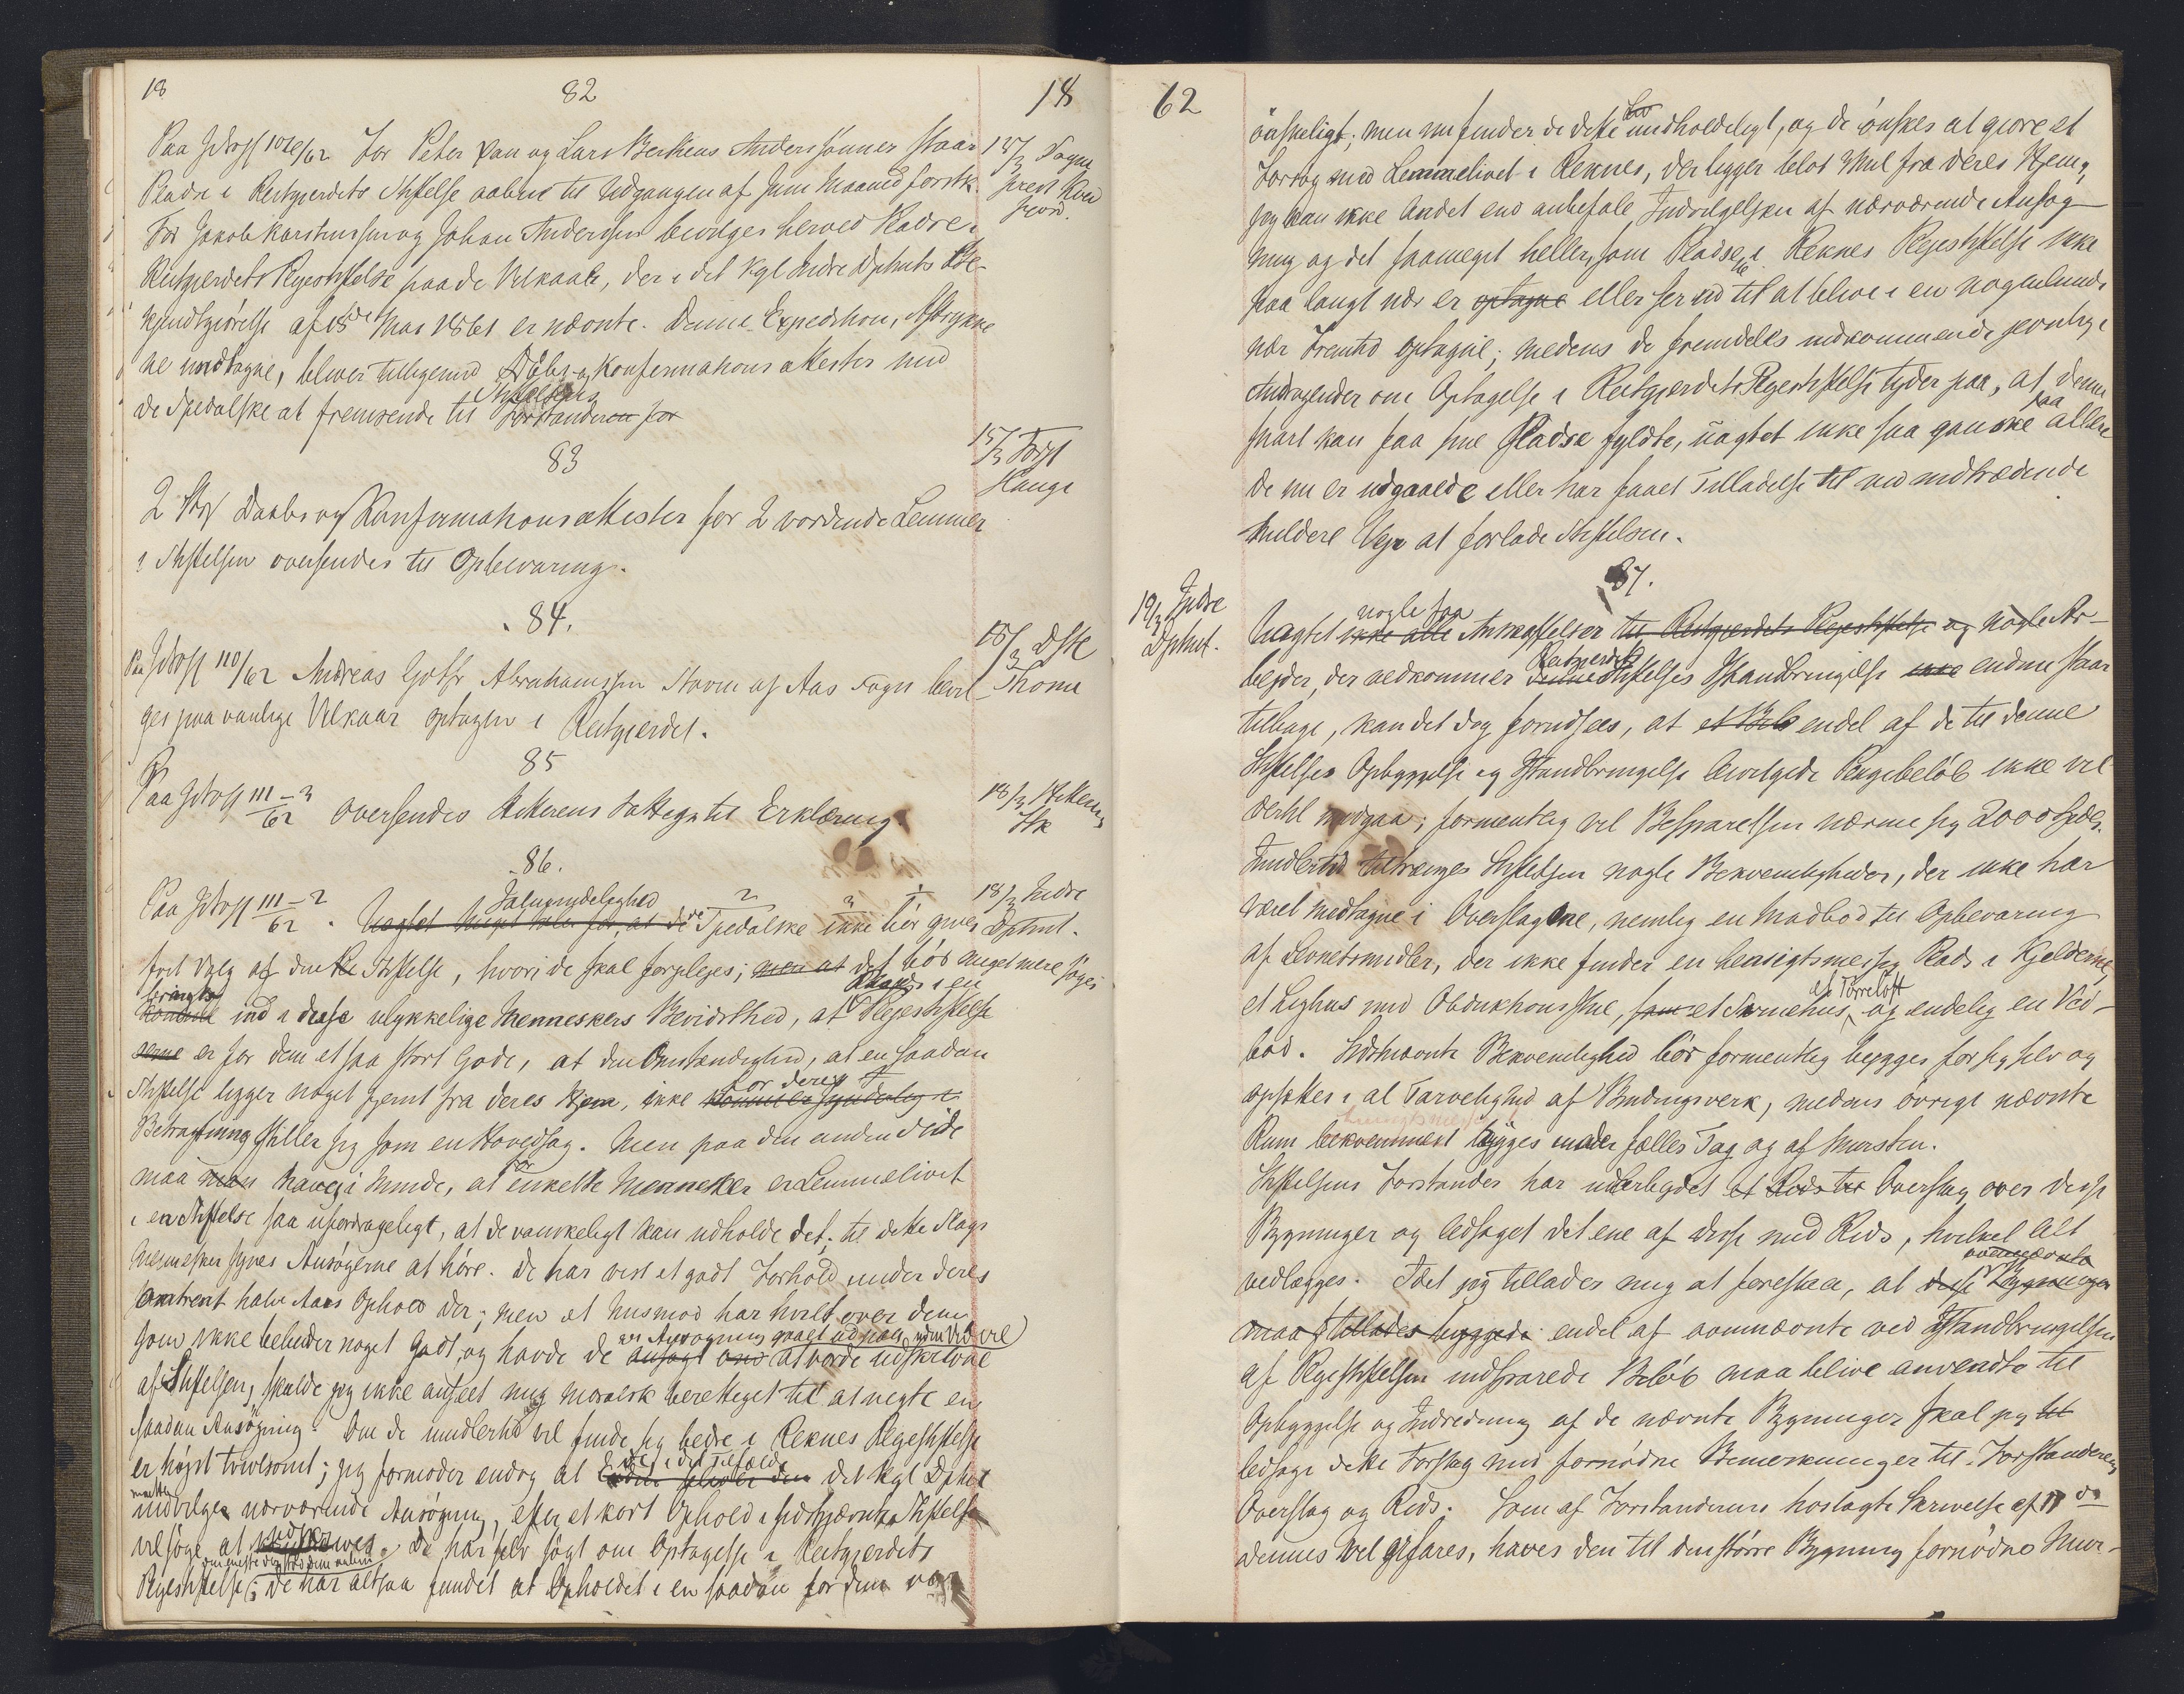 18
82
18
Paa Jdtog 101/62 For Peter Pau og Lars Berkens Anderssönner staar
Pladse i Reitgjerdets Stiftelse aabne til Udgangen af Juni Maaned förstk.
13/3 Sogne
prest Kvæ
fjord.
For Jakob Karstenssen og Johan Anderssen bevilges herved Pladse i
Reitgjerdets Plejestiftelse paa de Vilkaar, der i det Kgl Indre Dptmts Be-
kjendtgjörelse af 18de Mai 1861 er nævnte. Denne Expedition, Aftrykke
ne undtagne, bliver tilligemed Döbe og Konfirmationsattester med
de Spedalske at fremsende til Stiftelsens Forstander
83
15/3 Forst
Hauge
2 Stk Daabs og Konfirmationsattester for 2 vordende Lemmer
i Stiftelsen oversendes til Opbevaring.
84.
Paa Jdtog 110/62 Andreas Gotfr Abrahamssen Storm af Aas Sogn bevil
ges paa vanlige Vilkaar optagen i Reitgjerdet.
15/3 Dstl
Thome
85
Paa Jdtog 111-3/62 oversendes Rekvirens Vattegn til Erklæring.
18/3
86.
Paa Jdtog 111-2/62. Uagtet Meget taler for, at de Spedalske ikke bör gives
Talmodighed 2 3 1
18/3 Indre
Dptmt.
frit Valg af den Stiftelse, hvori de skal forpleies; men at det bör meget mere söges
bringt ind i disse ulykkelige Menneskers Bevidsthed, at Plads i en Plejestiftelse
er for dem et saa stort Gode, at den Omstændighed, at en saadan
Stiftelse ligger noget fjernt fra deres Hjem, ikke for deres
Betragtning stiller sig som en Hovedsag. Men paa den anden Side
maa man have i Minde, at for enkelte Mennesker er Lemmelivet
i en Stiftelse saa ufordrageligt, at de vanskeligt kan udholde det; til dette Slags
Mennesker synes Ansögerne at höre. De har vist et godt Forhold under deres
omtrent halve Aars Ophold der; men et Mismod har hvilt over dem
som ikke bebuder noget Godt, og havde de at vorde udskrevne
af Stiftelsen, skulde jeg ikke anseet mig moralsk berettiget til at negte en
saadan Ansögning. Om de imidlertid vil finde sig bedre i Reknes Plejestiftelse
er höist tvivlsomt; jeg formoder endog at de i det Tilfælde det Kgl Dptmt
maatte indvilge nærværende Ansögning, efter et kort Ophold i sidstnævnte Stiftelse
vil söge at udskrives. De har selv sögt om Optagelse i Reitgjerdets
Plejestiftelse; de har altsaa fundet at Opholdet i en saadan for dem var
62
önskeligt; men nu finder de dette uudholdeligt, og de önskes at gjöre et
Forsög med Lemmelivet i Reknes, der ligger blot 3 Mil fra deres Hjem;
jeg kan ikke Andet end anbefale Indvilgelsen af nærværende Ansög-
ning og det saameget heller, som Pladse i Reknes Plejestiftelse ikke
paa langt nær er optagne eller ser ud til at blive i en nogenlunde
nær Fremtid optagne; medens de fremdeles indkommende jevnlige
Andragender om Optagelse i Reitgjerdets Plejestiftelse tyder paa, at denne
snart kan faa sine Pladse fyldte, uagtet ikke saa ganske faa allere
de nu er udgaaede eller har faaet Tilladelse til ved indtrædende
mildere Vejr at forlade Stiftelsen.
87.
19/3 Indre
Dptmt.
Uagtet ikke alle nogle faa Anskaffelser til Reitgjerdets Plejestiftelse og nogle Ar-
bejder, der vedkommer denne Reitgjerdets Stiftelses Istandbringelse ikke endnu staar
tilbage, kan det dog forudsees, at et Belö endel af de til denne
Stiftelses Opbyggelse og Istandbringelse bevilgede Pengebelöb ikke vil
dertil medgaa; formentlig vil Besparelsen nærme sig 2000 Spdlr.
Imidlertid tiltrænges Stiftelsen nogle Bekvemmeligheder, der ikke har
været medtagne i Overslagene, nemlig en Madbod til Opbevaring
af Levnetsmidler, der ikke finder en hensigtsmessig Plads i Kjelderne,
et Lighus med Obduktionsstue, samt et Tornehus, et Törreloft og endelig en Ved-
bod. Sidstnævnte Bekvemmelighed bör formentlig bygges for sig selv og
opsættes i al Tarvelighed af Bindingsverk, medens övrige nævnte
Rum bekvemmest bygges under fælles Tag og af Mursten.
Stiftelsens Forstander har udarbejdet et Rids til Overslag over disse
Bygninger og ledsaget det ene af disse med Rids, hvilket Alt
vedlægges. Idet jeg tillader mig at foreslaa, at disse ovennævnte Bygninger
maa tillades byggede endel af ovennævnte ved Istandbringelsen
af Plejestiftelsen indsparede Belöb maa blive anvendte til
Opbyggelse og Indredning af de nævnte Bygninger skal jeg til
ledsage dette Forslag med fornödne Bemerkninger til Forstanderens
Overslag og Rids. Som af Forstanderens hoslagte Skrivelse af 11 ds
dennes vil erfares, haves den til den större Bygning fornödne Mur-